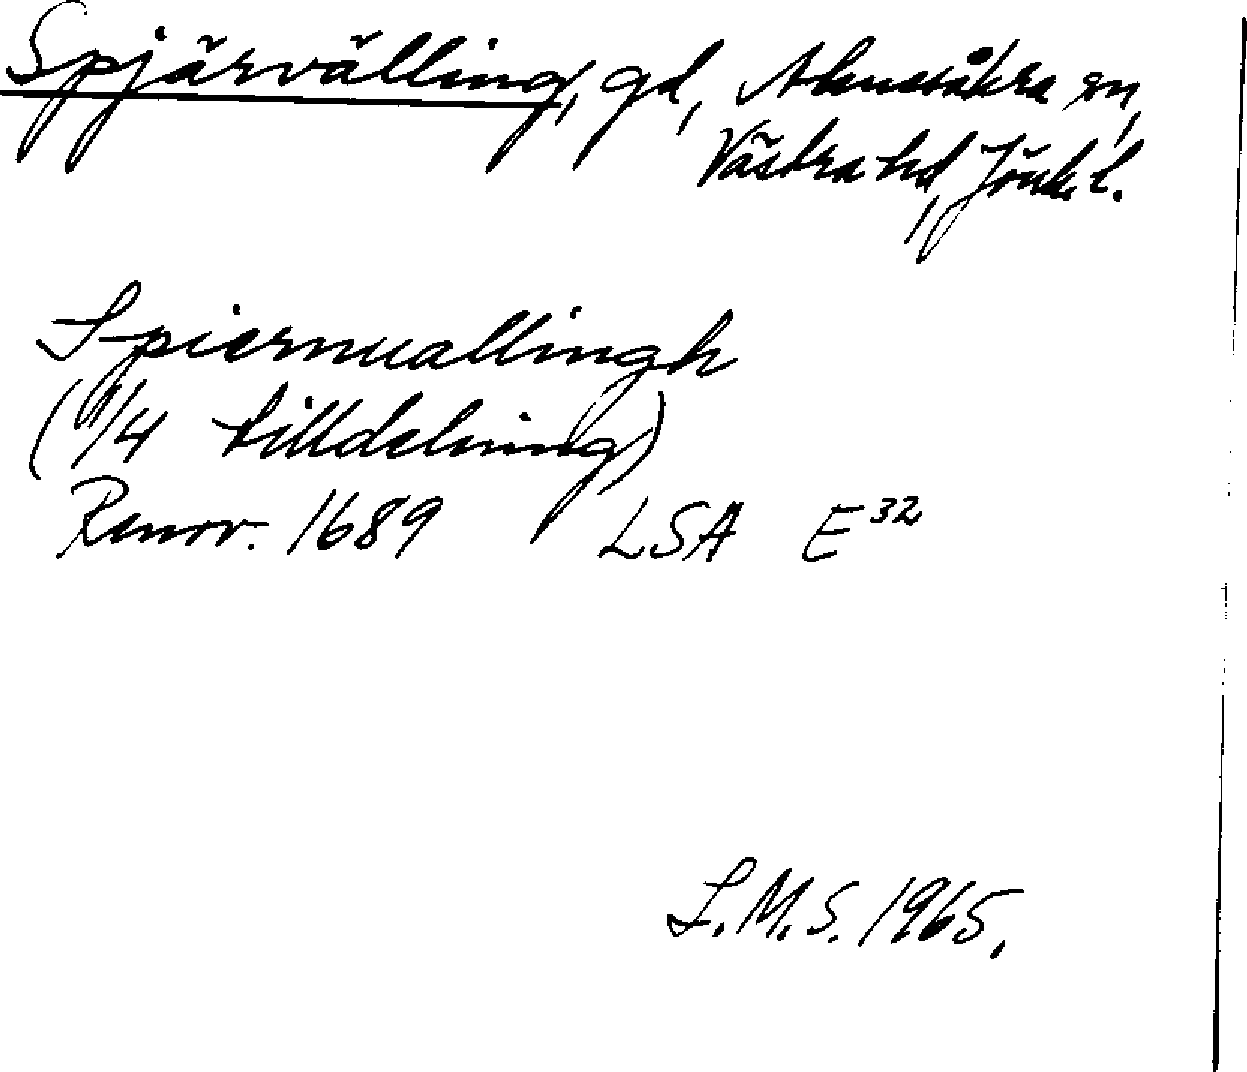 Spjärvälling, gd, Almesåkra sn,
Västra hd, Jönk. l.
Spiernuallingh
(1/4 tilldelning)
Renov. 1689 LSA E32
L.M.S. 1965.